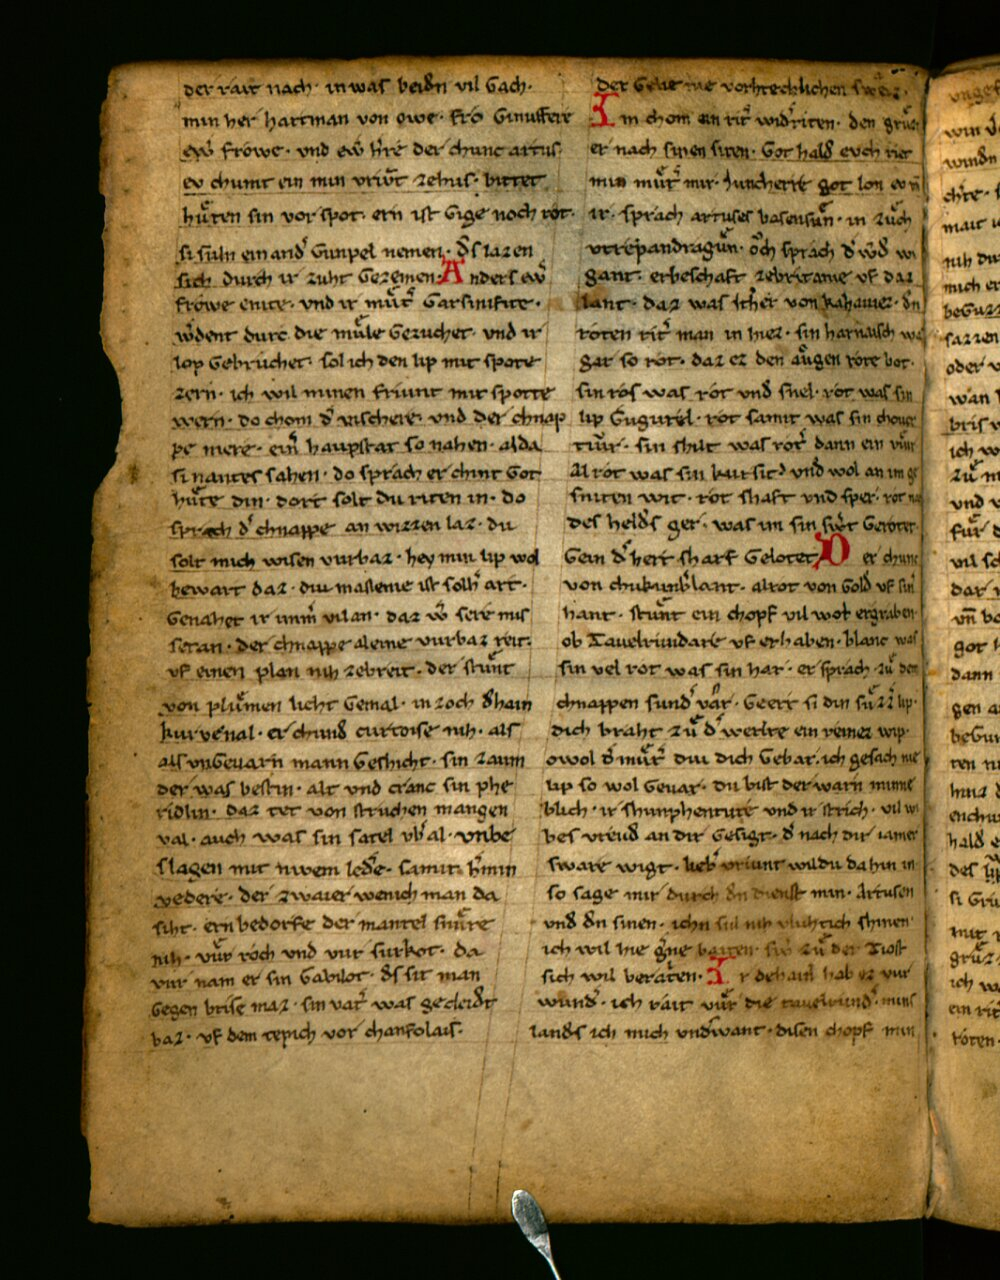 der rait nach · in was beidn vil Gach ·
min her hartman von owe · fro Ginuffere
ew̄ frowe · vnd ew̄ h̄re der chunc artus ·
ev chumt ein min vriv̄t zehus · bittet
hu̓ten sin vor spot · ern ist Gige noch rot ·
si suln ein and̓ Gunpel nemen · d̓s lazen
sich durch ir zuht Gezemen · Anders ew̄
frowe enite · vnd ir mu̓t̄ Garsinifite ·
w̓dent durc die mu̓le Gezuchet · vnd ir
lop Gebruchet · sol ich den lip mit spote
zern · ich wil minen friunt mit spotte
wern · do chom d̓ vischere · vnd der chnap
pe mere · ein̓ haupstat so nahen · alda
si nantes sahen · do sprach er chint Got
hu̓te din · dort solt du riten in · do
sprach d̓ chnappe an wizzen laz · du
solt mich wisen vurbaz · hey min lip wol
bewart daz · div massenie ist solh̓ art ·
Genahet ir imm̄ vilan · daz w̄ sere mis
setan · der chnappe aleine vurbaz reit ·
vf einen plan nih zebreit · der stu̓nt
von plu̓men licht Gemal · in zoch d̓hain
kurvenal · er chund curtoise nih · als
als vnGevarn mann Geshicht · sin zaum
der was bestin · alt vnd cranc sin phe
ridlin · daz tet von struchen mangen
val · auch was sin satel vb̓al · vnbe
slagen mit niwem led̓e · samit h̄min
vedere · der zwaier wenich man da
siht · ern bedorfte der mantel snu̓re
nih · vu̓r roch vnd vur surkot · da
vur nam er sin Gabilot · d̓s sit man
Gegen brise maz · sin vat̄ was gecleid̓t
baz · vf dem tepich vor chanfolais ·
der Gehe nie vorhtechlichen sweiz ·
Im chom ein rit̄ wid̓riten · den gru̓zt
er nach sinen siten · Got hald̓ evch riet
min mu̓t̄ mir · Juncherre got lon ev vn̄
ir · sprach artuses basensun · in zu̓ch
vtrepandragun · och sprach d̓ w̓d̓ wi
gant · erbeschaft zebritanie vf daz
lant · daz was ither von kahaviez · dn
roten rit̄ man in hiez · sin harnaisch waz
gar so rot · daz ez den augen rote bot ·
sin ros was rot vnd snel · rot was sin
lip Gugurel · rot samit was sin chover
tiur · sin shilt was rot̓ dann ein viur
Al rot was sin kursit vnd wol an im ge
sniten wit · rot shaft vnd sper · rot nach
des helds ger · was im sin sw̓t Gerotet
Gein d̓ hert sharf Gelotet · Der chunc
von chukumb̓lant · alrot von Gold vf sin̓
hant · stu̓nt ein chopf vil wol ergraben ·
ob Tavelrundare vf erhaben · blanc was
sin vel rot was sin har · er sprach · zu̓ dem
chnappen sund̓ var · Geert si din su̓zz̓ lip ·
dich braht zu̓ d̓ werlte ein reinez wip ·
owol d̓ mu̓t̄ div dich Gebar · ich gesach nie
lip so wol Gevar · du bist der warn minne
blich · ir shumphenture vnd ir strich · vil wi
bes vreud an dir Gesigt · d̓ nach dir iamer
sware wigt · lieb̓ vriunt wildu da hin in
so sage mir durch dn dienst min · Artusen
vnd dn sinen · ichn sul nih vluhtich shinen
ich wil hie g̓ne baiten · sw̄ zu̓ der Tiost
sich wil beraiten · Ir dehain hab ez vur
wund̓ · ich rait vu̓r die tavelrund̓ · mins
lands ich mich vnd̓want · disen chopf min